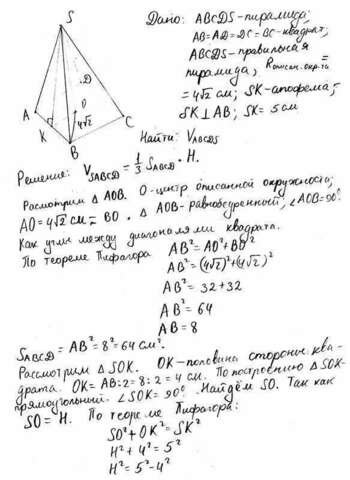 S
A
K
B
C
D
O
4√2
Дано: ABCDS-пирамида;
AB=AD=DC=BC-квадрат,
ABCDS-правильная
пирамида, Rописан.окр-та =
=4√2 см; SK-апофема;
SK⊥AB; SK=5 см
Найти: VABCDS
Решение: VSABCD = 1/3 SABCD · H.
Рассмотрим △AOB. O-центр описанной окружности;
AO=4√2 см = BO. △AOB-равнобедренный; ∠AOB=90°.
Как углы между диагоналями квадрата.
По теореме Пифагора AB²=AO²+BO²
AB²=(4√2)²+(4√2)²
AB²=32+32
AB²=64
AB=8
SABCD=AB²=8²=64 см².
Рассмотрим △SOK. OK-половина стороны ква-
драта. OK=AB:2=8:2=4 см. По построению △SOK-
прямоугольный. ∠SOK=90°. Найдём SO. Так как
SO=H. По теореме Пифагора:
SO²+OK²=SK²
H²+4²=5²
H²=5²-4²